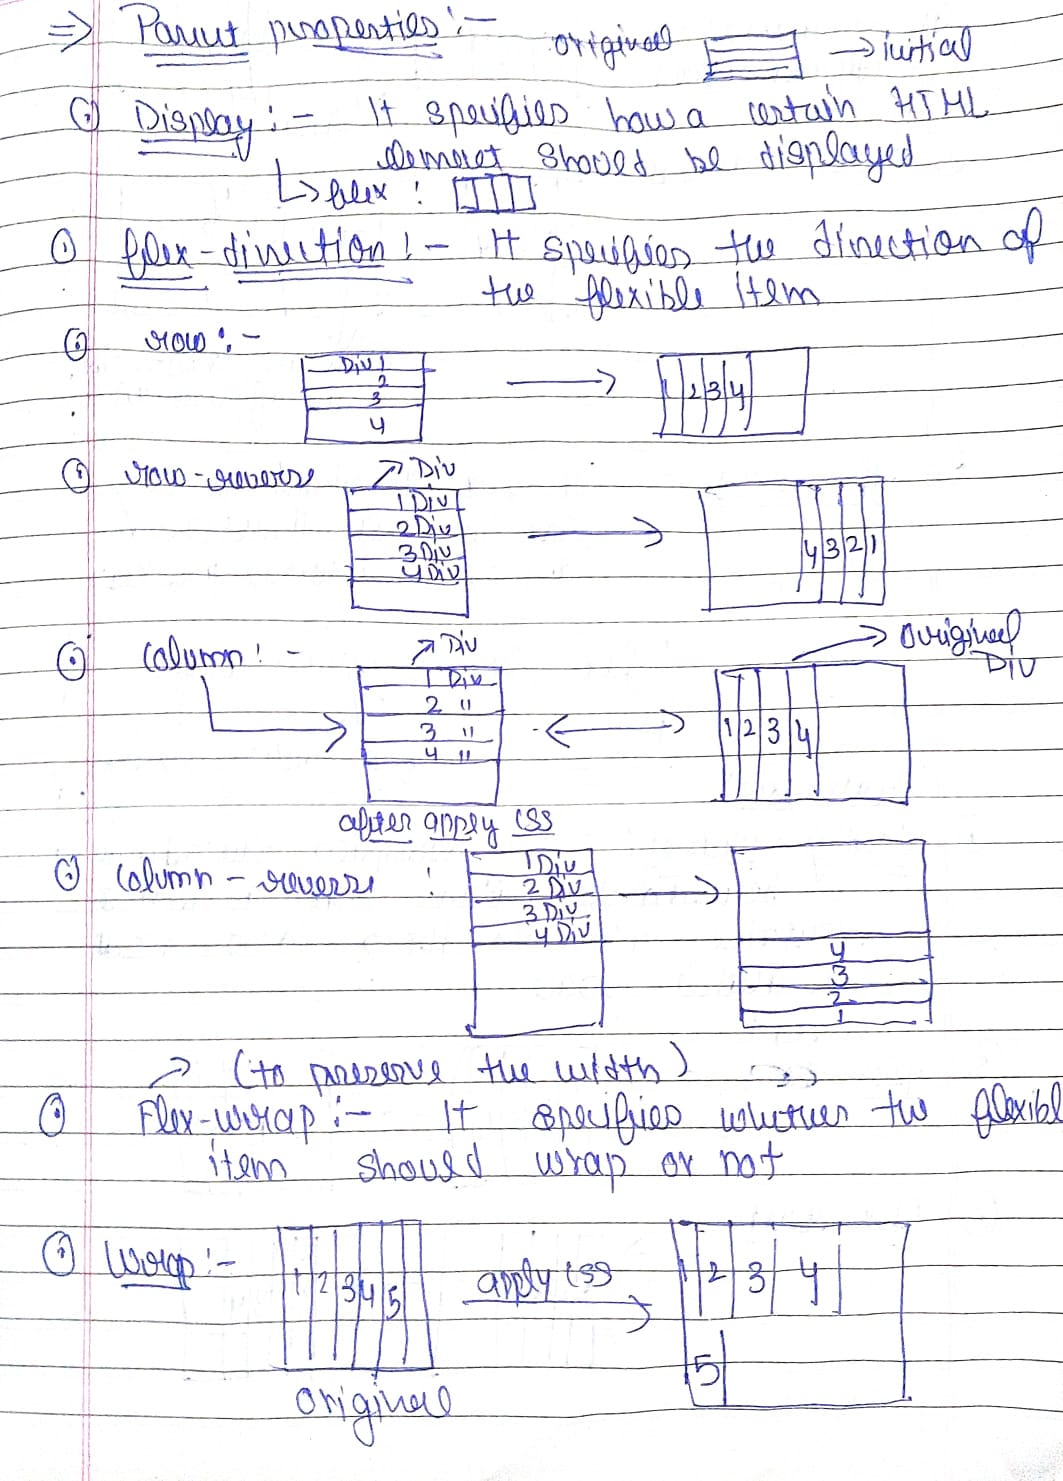 ⇒ Parent properties :- original → initial
Display :- It specifies how a certain HTML
element should be displayed
↳ flex :
① flex-direction :- It specifies the direction of
the flexible item
row :-
Div 1
2
3
4
1 2 3 4
row-reverse ↗ Div
1 Div
2 Div
3 Div
4 Div
4 3 2 1
column :- ↗ Div → original
DIV
1 Div
2 "
3 "
4 "
1 2 3 4
after apply CSS
column-reverse :
1 Div
2 Div
3 Div
4 Div
4
3
2
1
(to preserve the width)
Flex-wrap :- It specifies whether the flexibl
item should wrap or not
Wrap :-
1 2 3 4 5
apply CSS
1 2 3 4
5
original